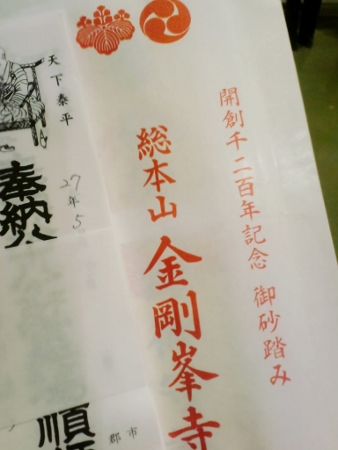 開創千二百年記念 御砂踏み
総本山 金剛峯寺
天下泰平
奉納
27年5
順
郡市